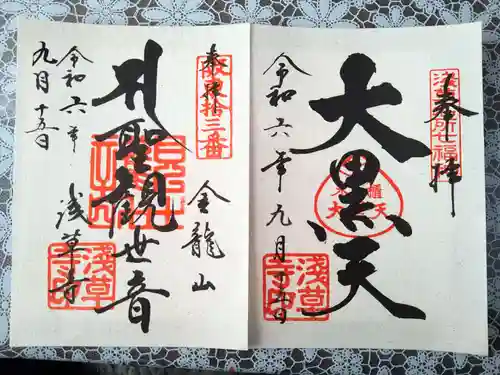 奉拝
浅草名所七福神
大黒天
令和六年九月十五日
浅草寺
奉拝
坂東拾三番
金龍山
聖観世音
浅草寺
令和六年
九月十五日
浅草寺